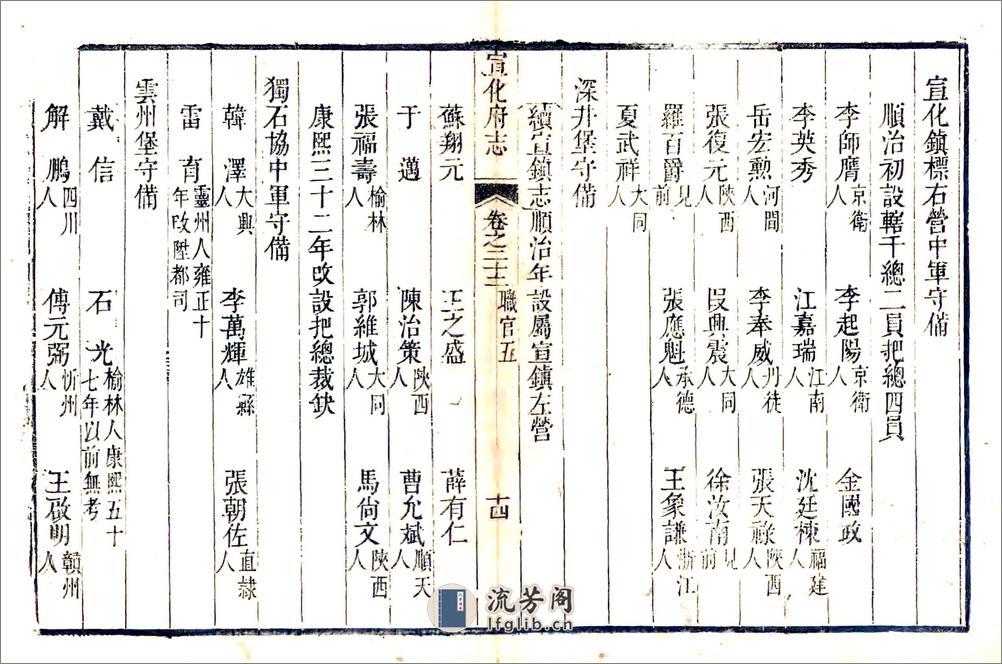 宣化鎮標右營中軍守備
順治初設轄千總二員把總四員
李師膺京衛人 李起陽京衛人 金國政
李英秀 江嘉瑞江南人 沈廷棟福建人
岳宏勲河間人 李奉威丹徒人 張天祿陝西人
張復元陝西人 段典震大同人 徐汝南見前
羅百爵見前 張應魁承德人 王象謙浙江人
夏武祥大同人
深井堡守備
續宣鎮志順治年設屬宣鎮左營
宣化府志 卷之二十三 職官五 十四
蘇翔元 王之盛 薛有仁
于邁 陳治策陝西人 曹允斌順天人
張福壽榆林人 郭維城大同人 馬尙文陝西人
康熙三十二年改設把總裁缺
獨石協中軍守備
韓澤大興人 李萬輝雄縣人 張朝佐直隷人
雷育靈州人雍正十年改陞都司
雲州堡守備
戴信 石光榆林人康熙五十七年以前無考
解鵬四川人 傅元弼忻州人 王啟明贛州人
流芳阁
lfglib.cn